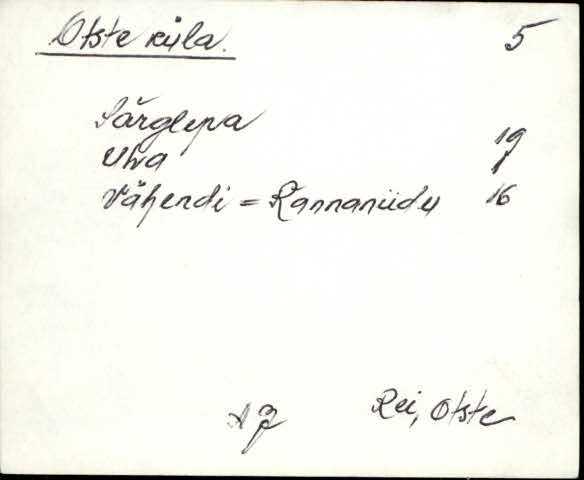 Otste küla. 5
Särglepa 19
Uha
Vähendi = Rannaniidu 16
Rei, Otste